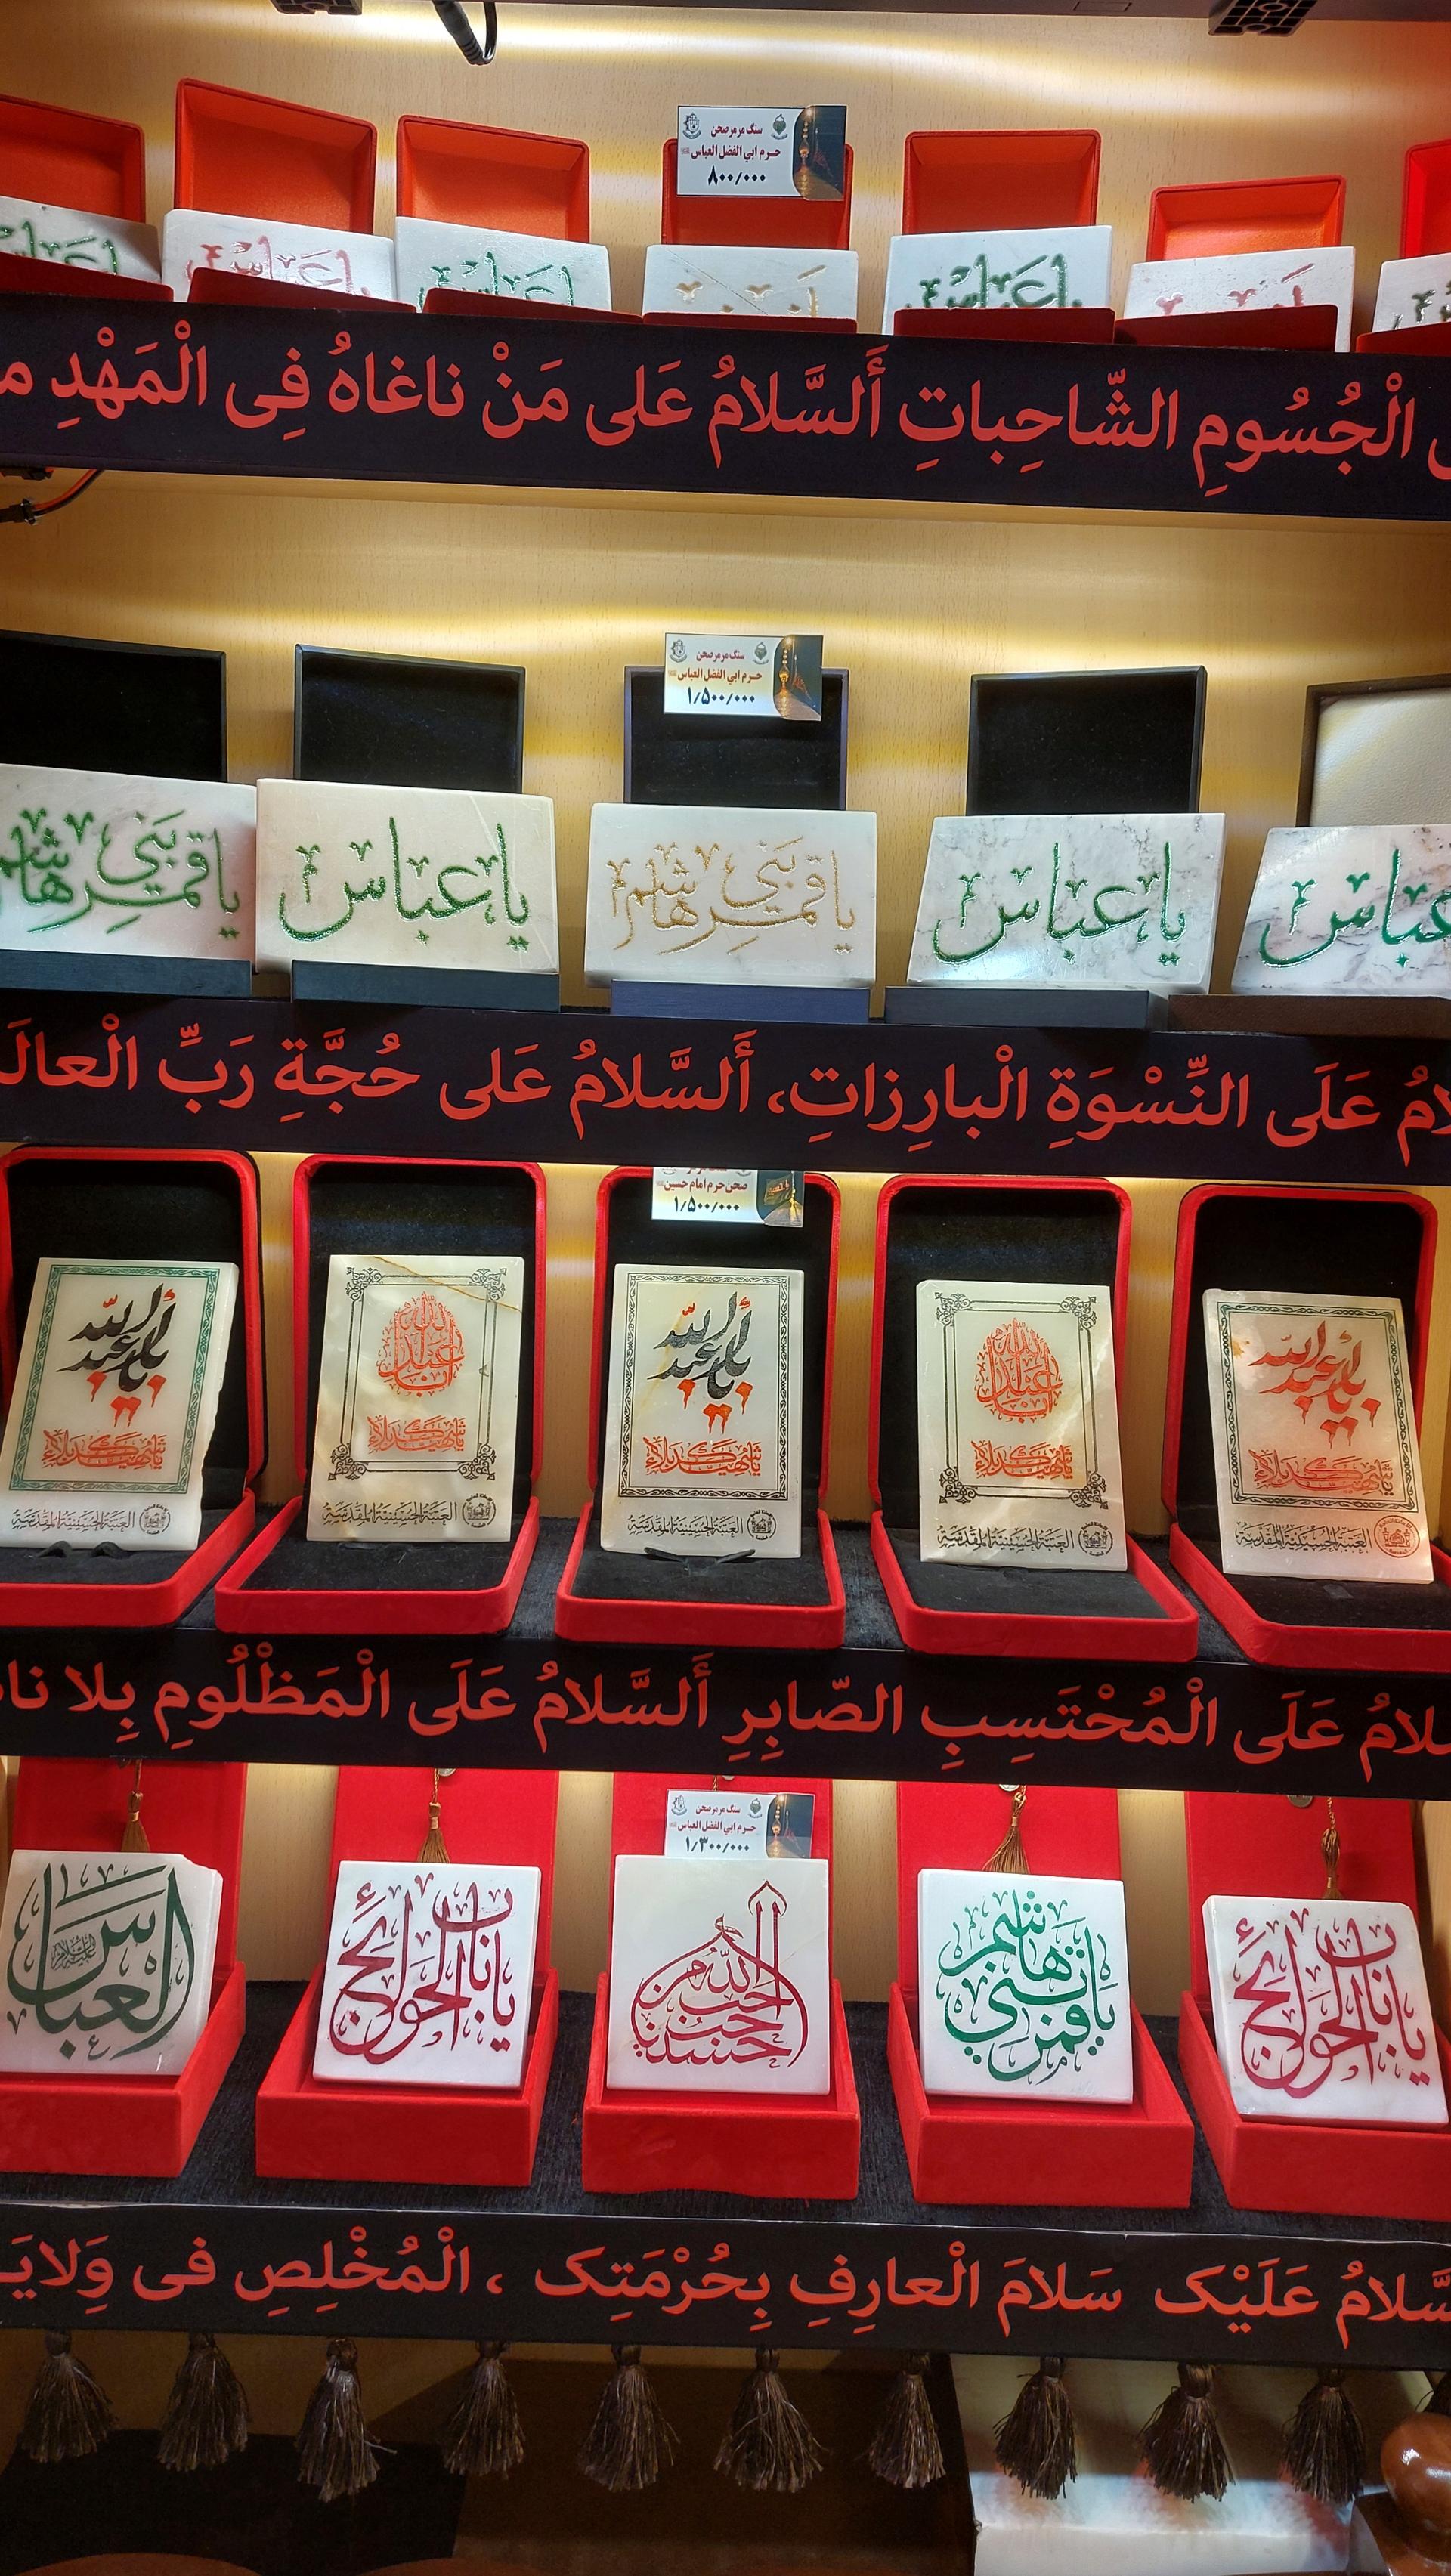 سنگ مرمر صحن
حرم ابي الفضل العباس
۸۰۰/۰۰۰
الْجُسُومِ الشّاحِباتِ أَلسَّلامُ عَلى مَنْ ناغاهُ فِی الْمَهْدِ
سنگ مرمر صحن
حرم ابي الفضل العباس
۱/۵۰۰/۰۰۰
یا قمر بنی هاشم
یا عباس
یا قمر بنی هاشم
یا عباس
عباس
عَلَى النِّسْوَةِ الْبارِزاتِ، أَلسَّلامُ عَلى حُجَّةِ رَبِّ
صحن حرم امام حسین
۱/۵۰۰/۰۰۰
یا أبا عبد الله
یا شهید کربلاء
العتبة الحسينية المقدسة
أبا عبد الله
یا شهید کربلاء
العتبة الحسينية المقدسة
یا أبا عبد الله
یا شهید کربلاء
العتبة الحسينية المقدسة
أبا عبد الله
یا شهید کربلاء
العتبة الحسينية المقدسة
یا أبا عبد الله
یا شهید کربلاء
العتبة الحسينية المقدسة
عَلَى الْمُحْتَسِبِ الصّابِرِ أَلسَّلامُ عَلَى الْمَظْلُومِ بِلا
سنگ مرمر صحن
حرم ابي الفضل العباس
۱/۳۰۰/۰۰۰
العباس
یا باب الحوائج
أحب الله من أحب حسینا
یا قمر بنی هاشم
یا باب الحوائج
عَلَیْک سَلامَ الْعارِفِ بِحُرْمَتِک ، الْمُخْلِصِ فی